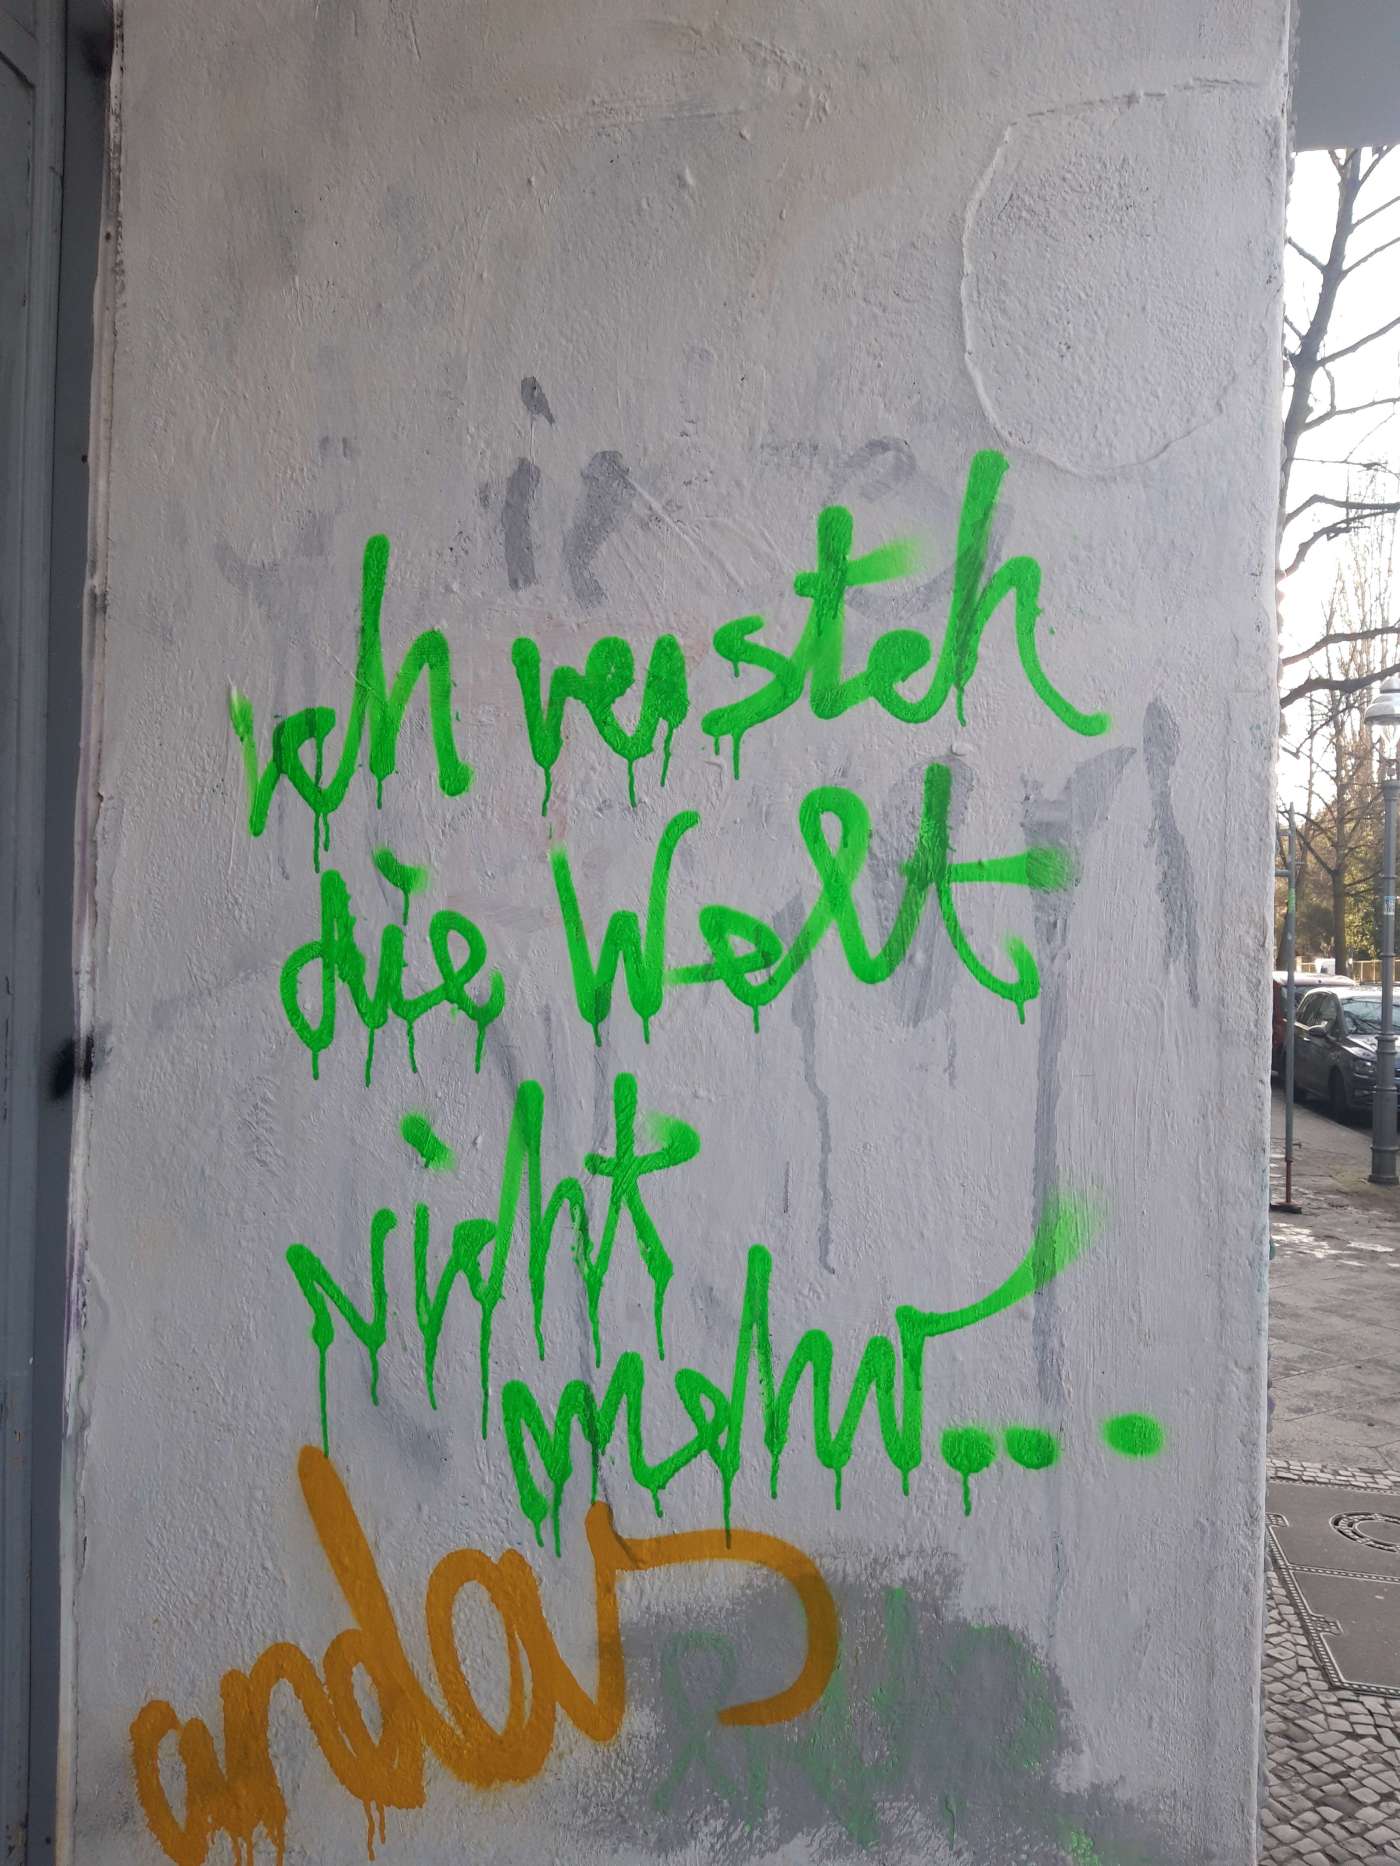 ich versteh
die Welt
nicht
mehr...
andor